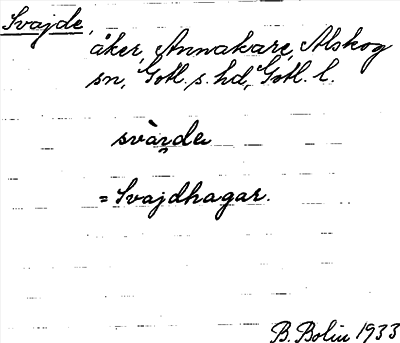 Svajde,
åker, Annakare, Alskog
sn, Gotl. s. hd, Gotl. l.
svàrde
= Svajdhagar.
B. Bolin 1933